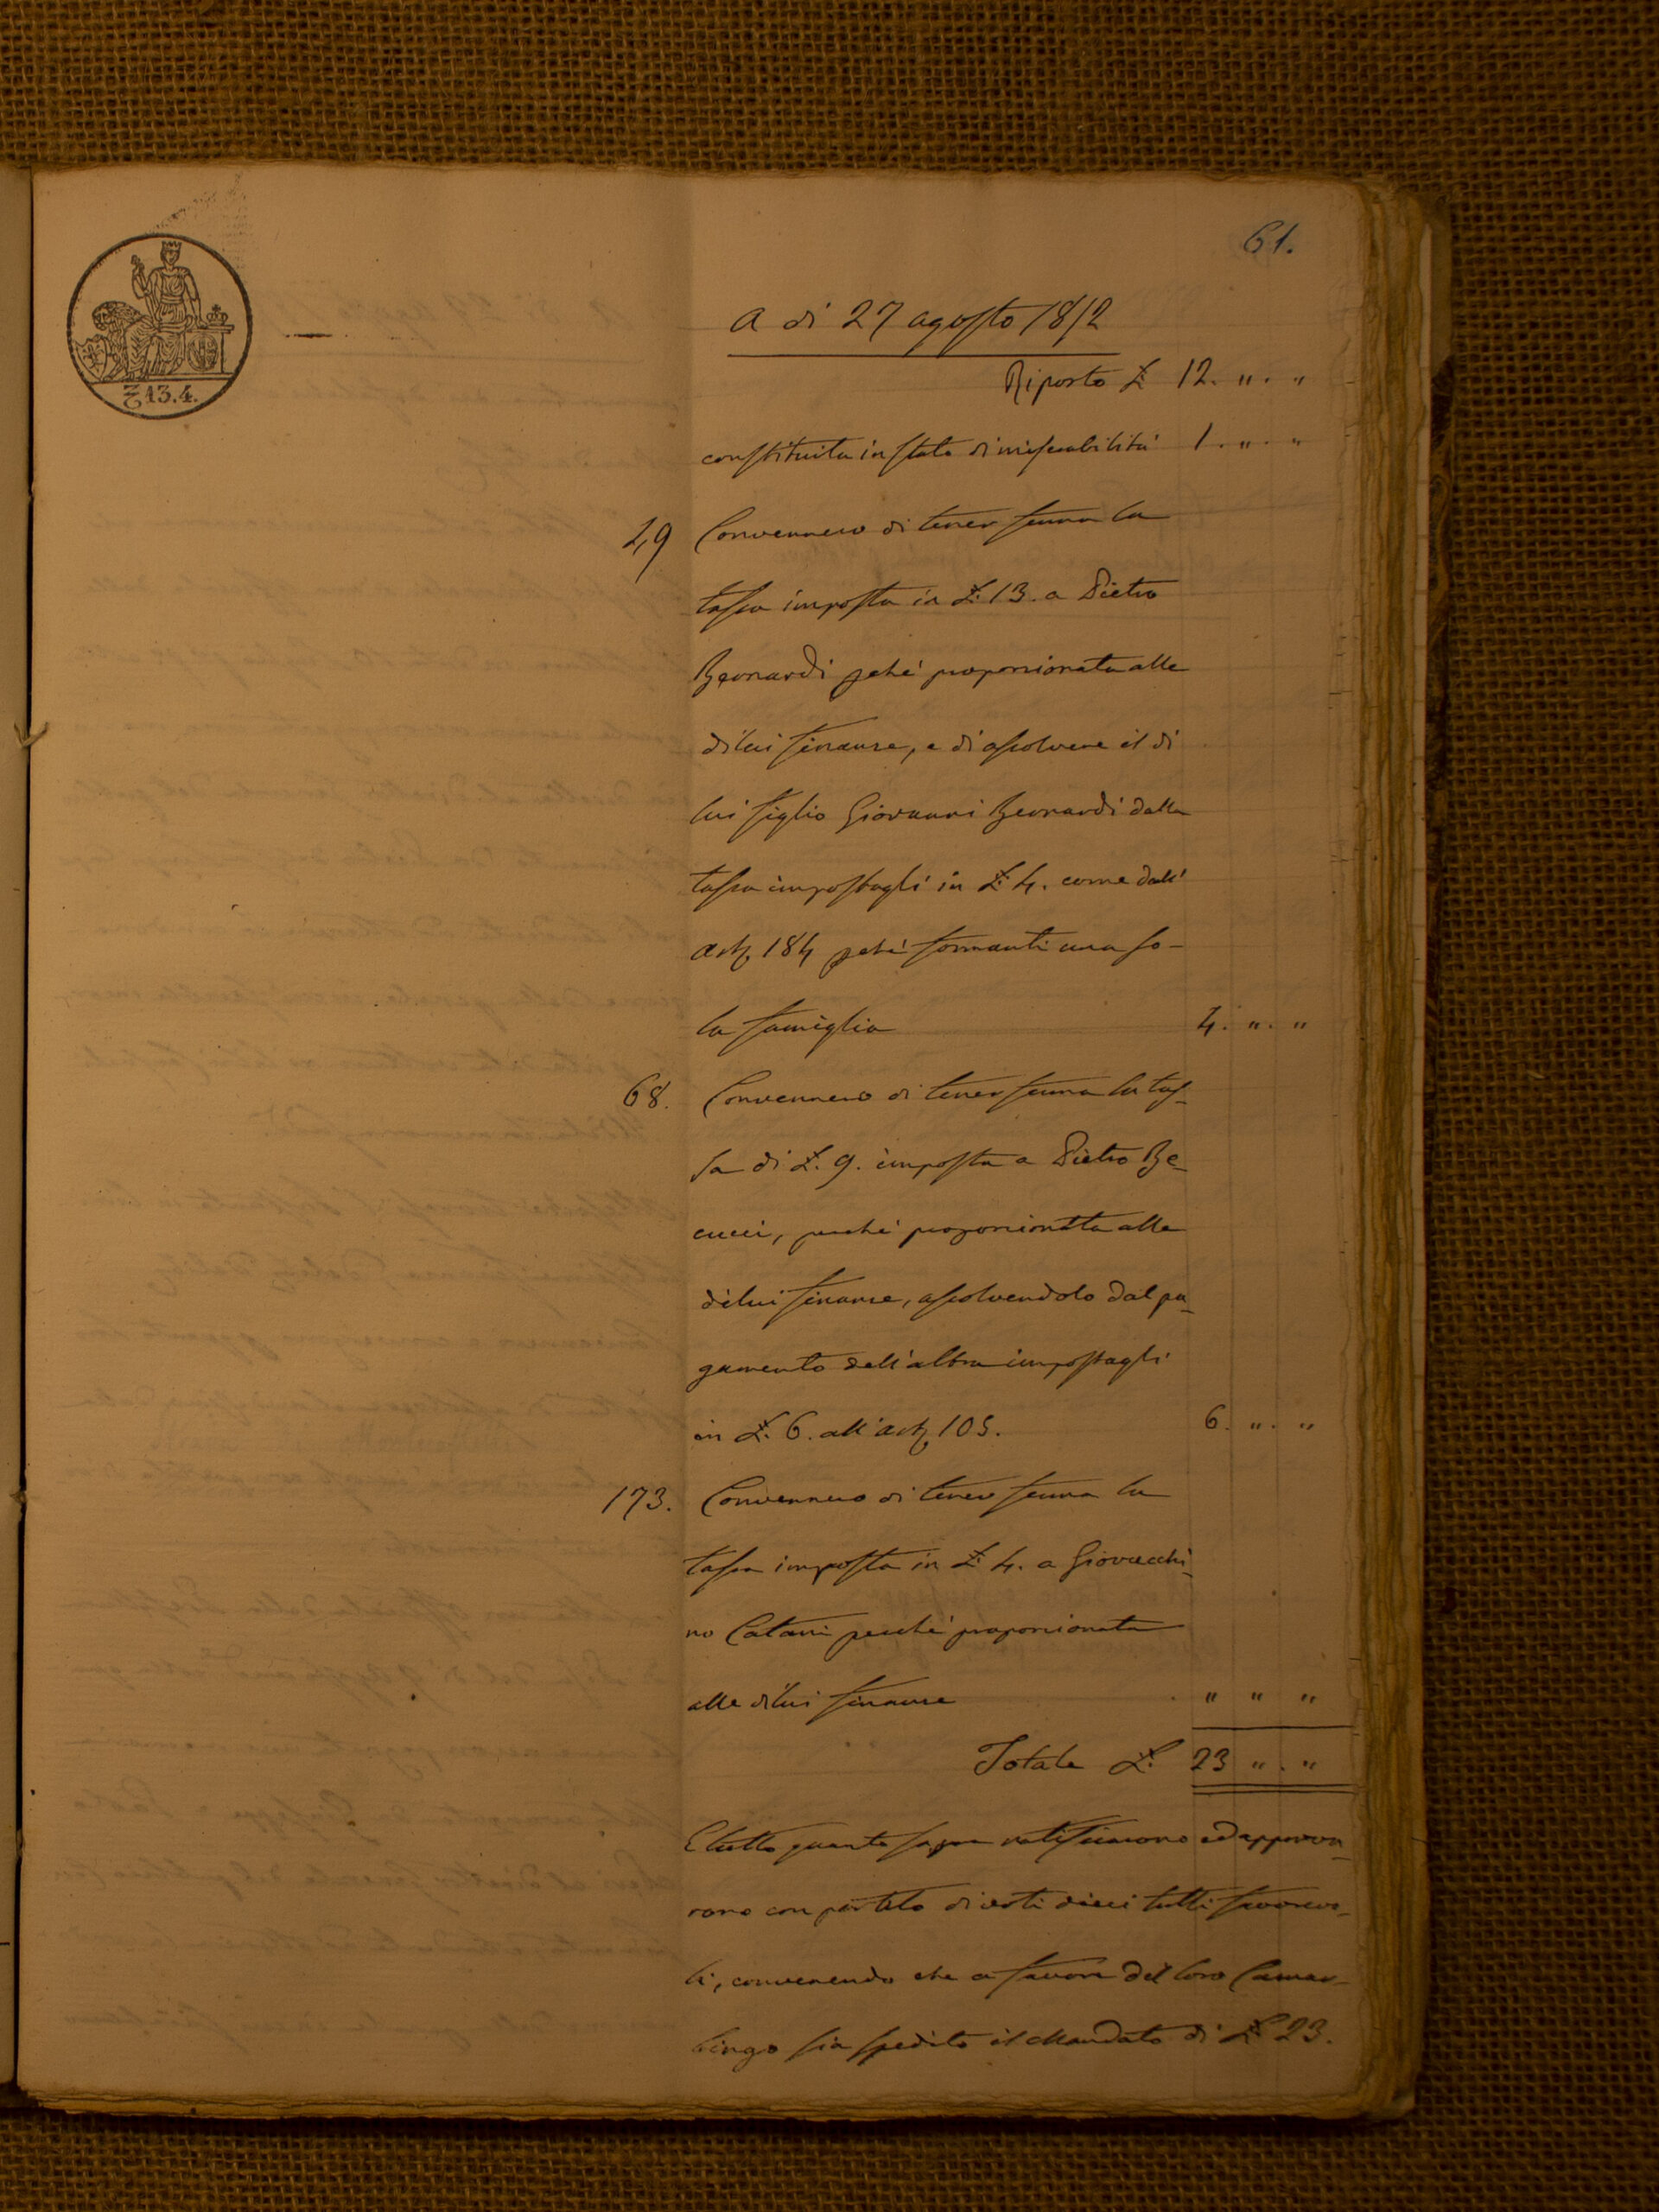 61.
₤13.4.
A dì 27 agosto 1812
Riporto £ 12. ". "
constituita in stato di miserabilità 1. ". "
49 Convennero di tener ferma la
tassa imposta in £. 13. a Pietro
Bernardi pché proporzionata alle
di lui finanze, e di assolvere il di
lui figlio Giovanni Bernardi dalla
tassa impostagli in £. 4. come dall'
art. 184 pché formanti una so-
la famiglia 4. ". "
68. Convennero di tener ferma la tas-
sa di £. 9. imposta a Pietro Be-
cucci, perché proporzionata alle
di lui finanze, assolvendolo dal pa-
gamento dell'altra impostagli
in £. 6. all'art. 105. 6. ". "
173. Convennero di tener ferma la
tassa imposta in £. 4. a Giovacchi-
no Catani perché proporzionata
alle di lui finanze " " "
Totale £. 23 ". "
E tutto quanto sopra ratificarono ed approva-
rono con partito di voti dieci tutti favorevo-
li, convenendo che a favore del loro Camar-
lingo sia spedito il Mandato di £ 23.